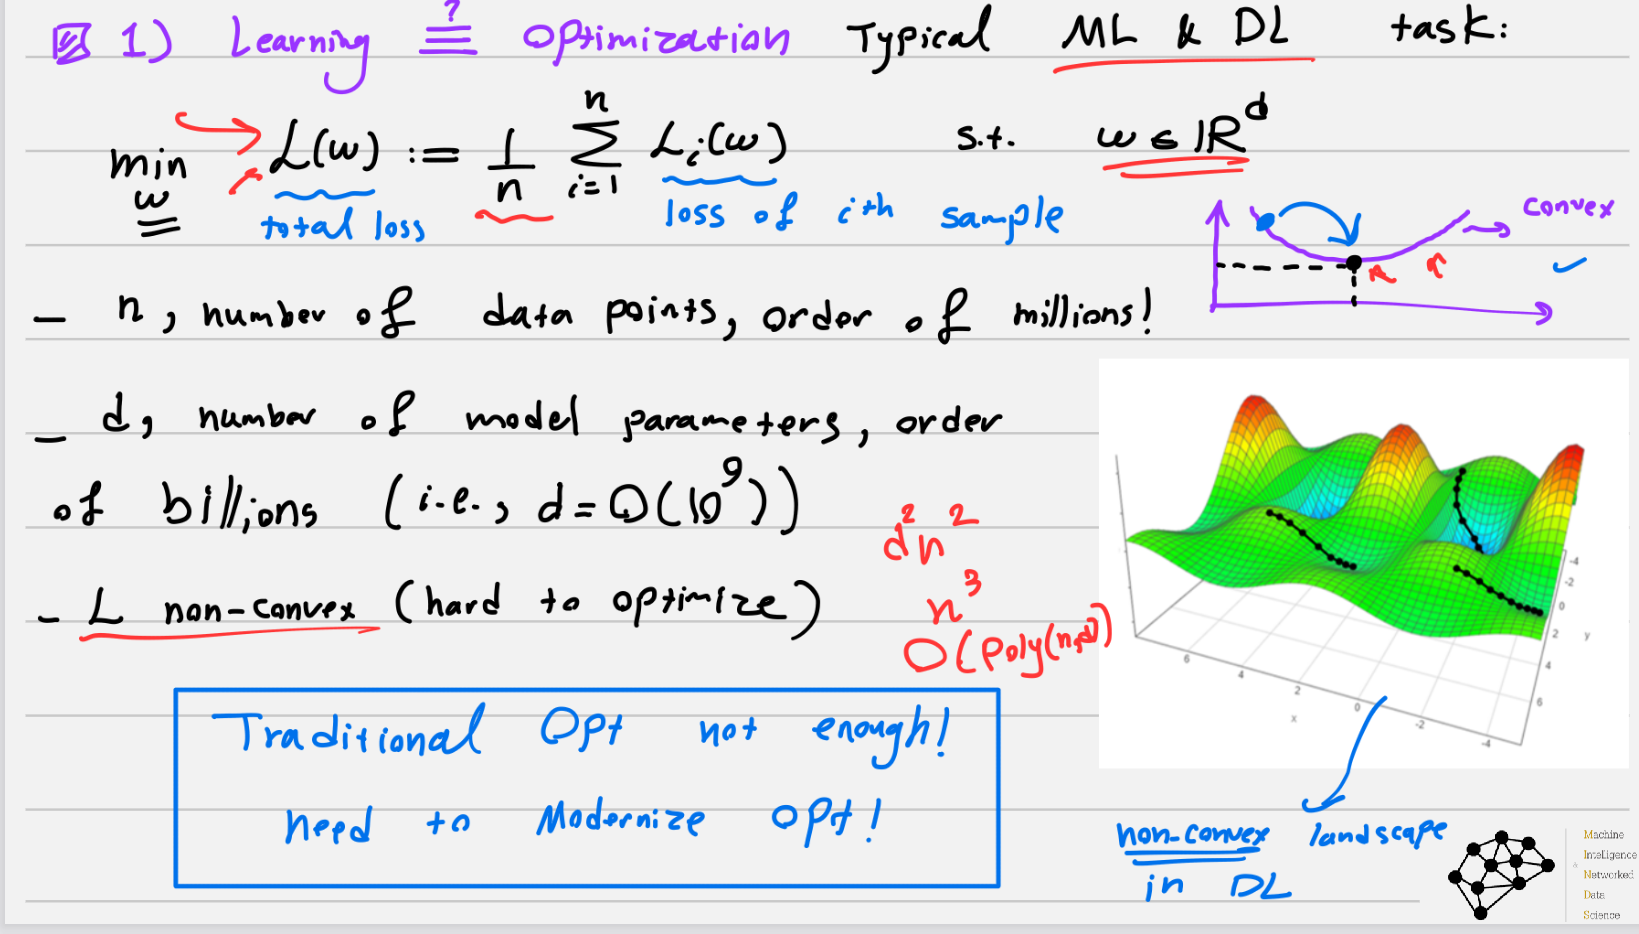 1) Learning ≡? Optimization Typical ML & DL task:
min_w L(w) := 1/n ∑_{i=1}^{n} L_i(w) s.t. w ∈ ℝ^d
total loss
loss of ith sample
convex
- n, number of data points, order of millions!
- d, number of model parameters, order
of billions (i.e., d = O(10^9))
d^2 n^2
- L non-convex (hard to optimize)
n^3
O(poly(n,d))
Traditional Opt not enough!
need to Modernize Opt!
6 4 2 0 -2 -4
x
-4 -2 0 2 4 6
y
non-convex landscape
in DL
Machine
Intelligence
& Networked
Data
Science